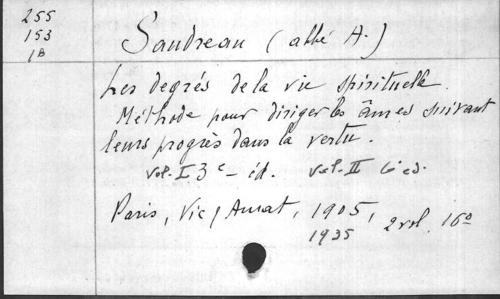 255
153
1B
Saudreau (abbé A.)
Les degrés de la vie spirituelle.
Méthode pour diriger les âmes suivant
leurs progrès dans la vertu.
vol. I 3e - éd. vol. II 6 éd.
Paris, Vic, Amat, 1905, 2 vol. 16º
1935